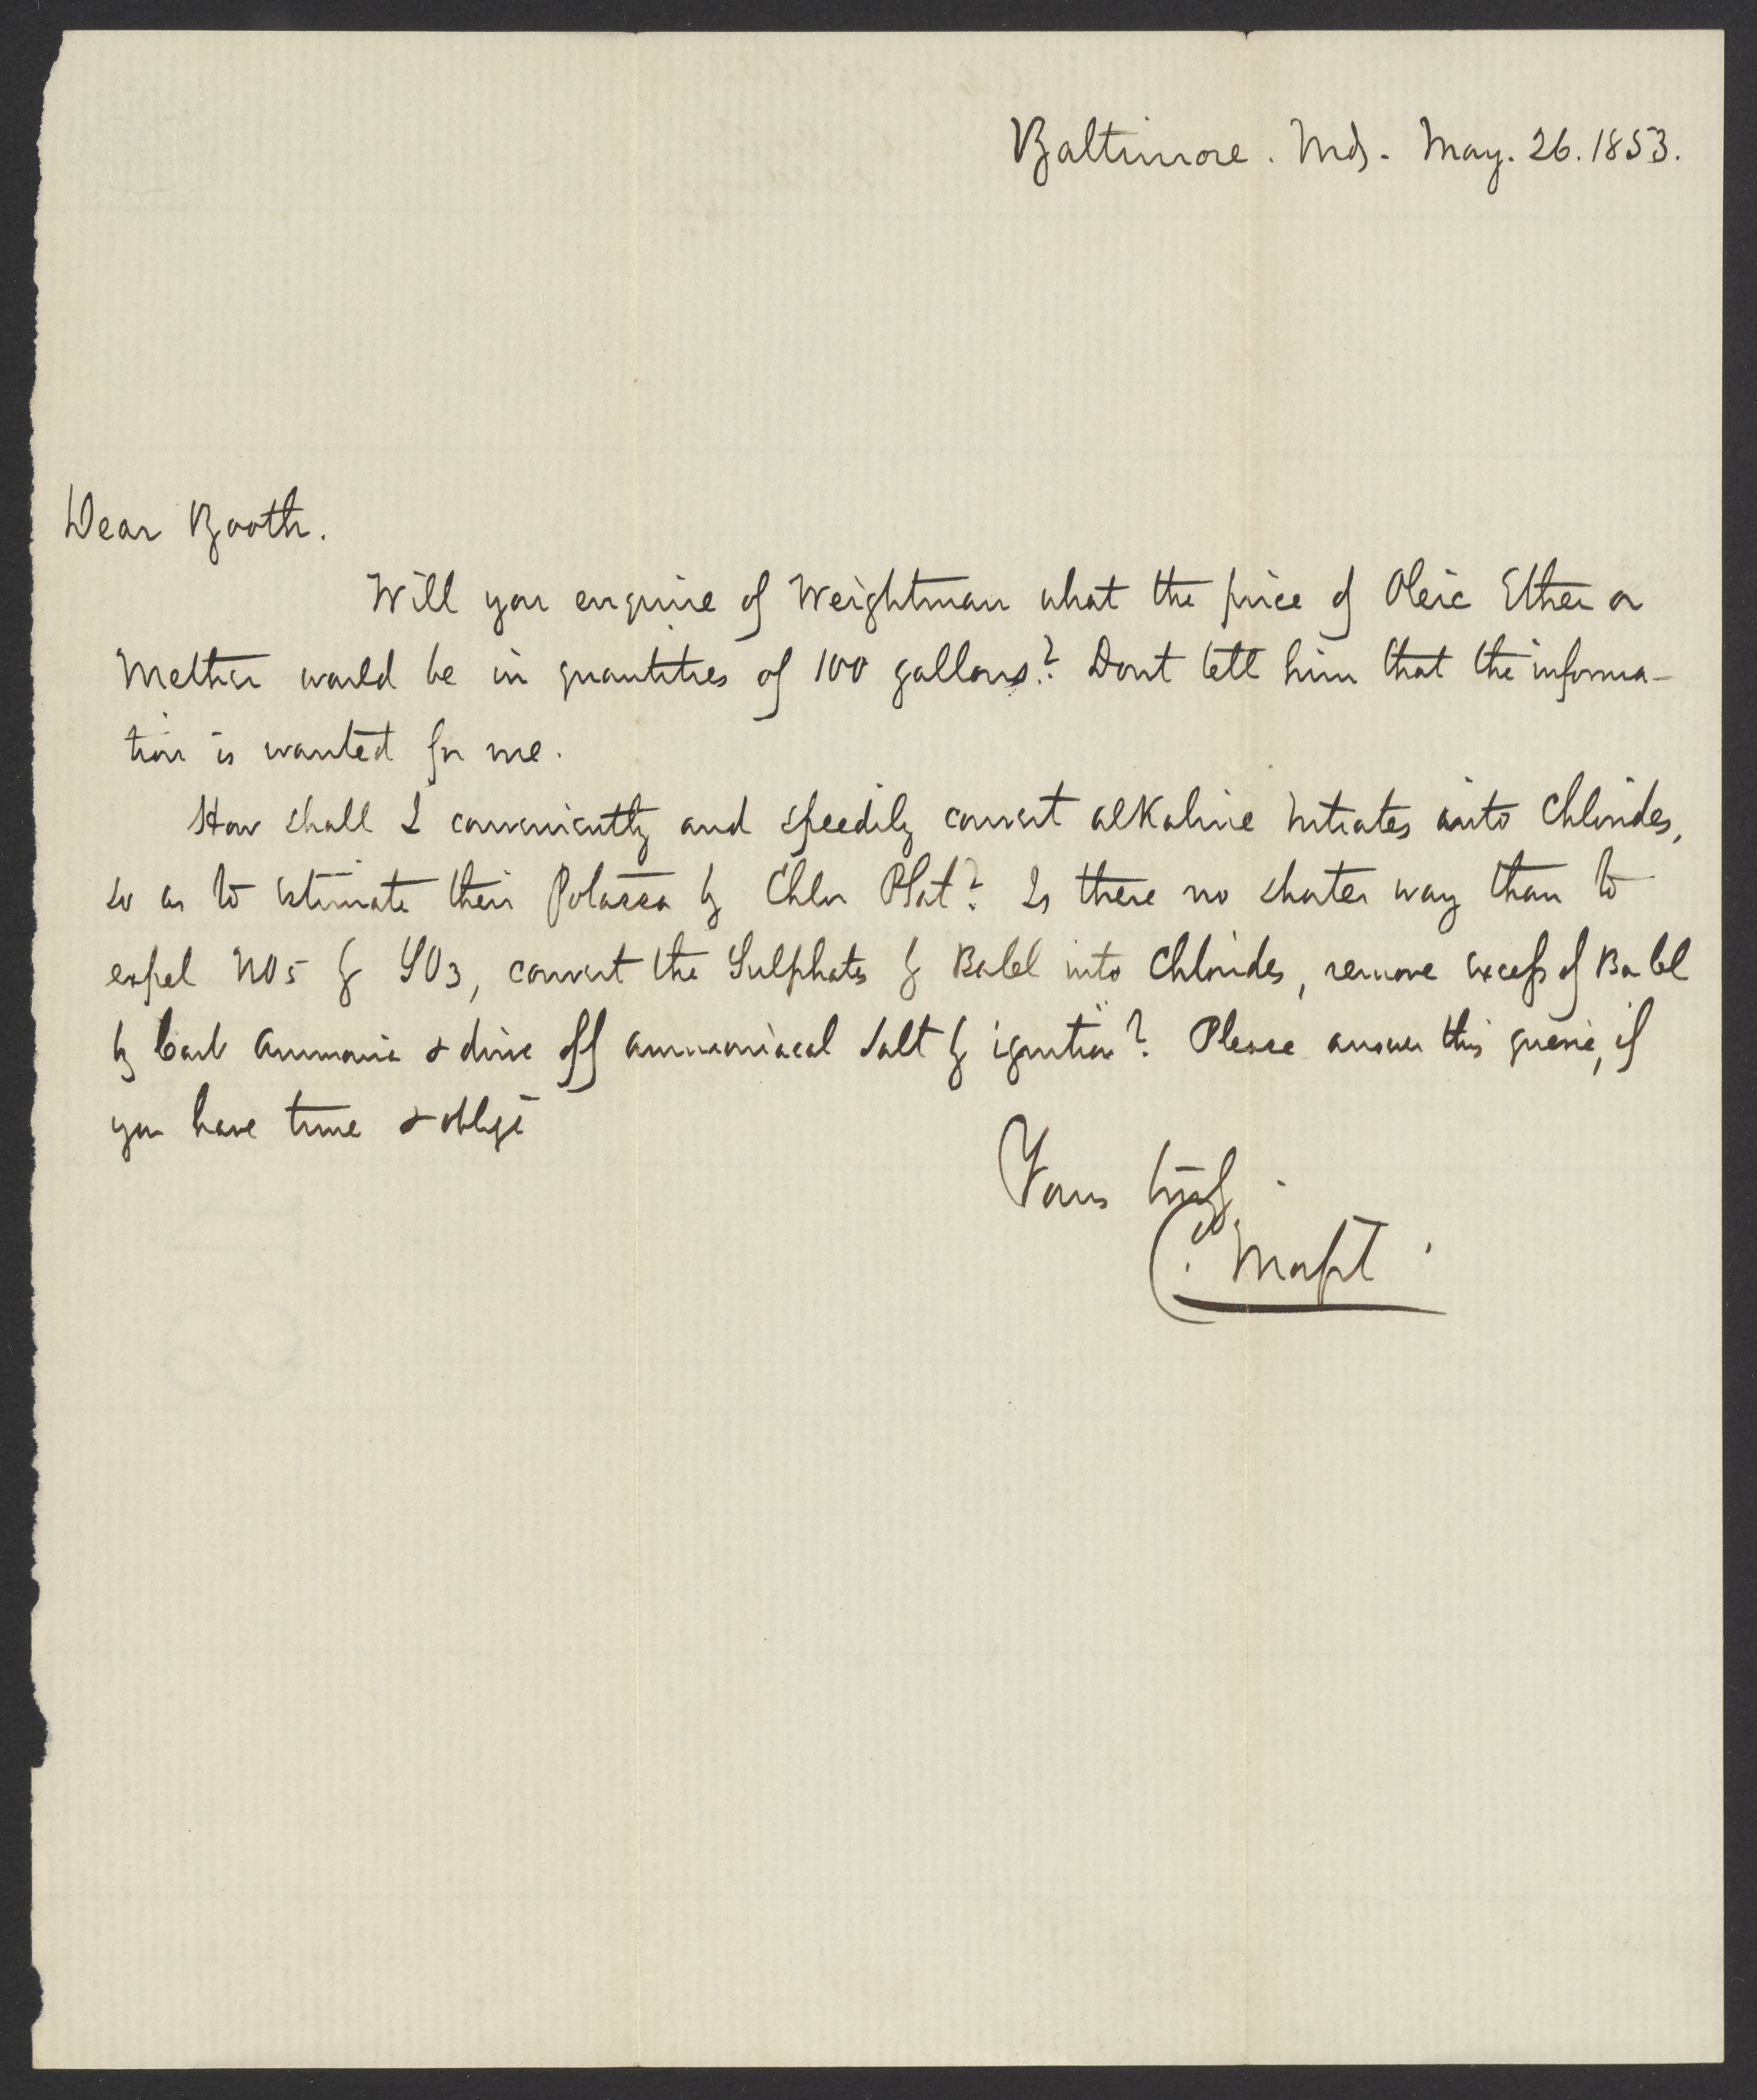 Baltimore. Md. May. 26. 1853.
Dear Booth.
Will you enquire of Weightman what the price of Oleic Ether or
Mether would be in quantities of 100 gallons? Dont tell him that the informa-
tion is wanted for me.
How shall I conveniently and speedily convert alkaline nitrates into Chlorides,
so as to estimate their Potassa by Chlor Plat? Is there no shorter way than to
expel NO5 by SO3, convert the Sulphates by BaCl into Chlorides, remove excess of BaCl
by Carb Ammonia & drive off ammoniacal salt by ignition? Please answer this querie, if
you have time & oblige
Yours truly.
C. Morfit.